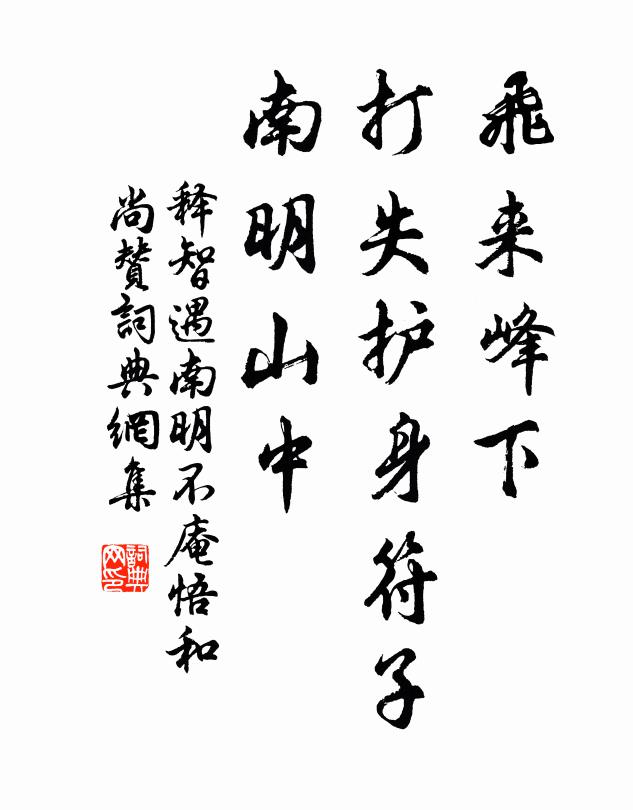 飛来峰下
打失护身符子
南明山中
释智遇南明不庵悟和
尚赞詞典網集
詞典
网印